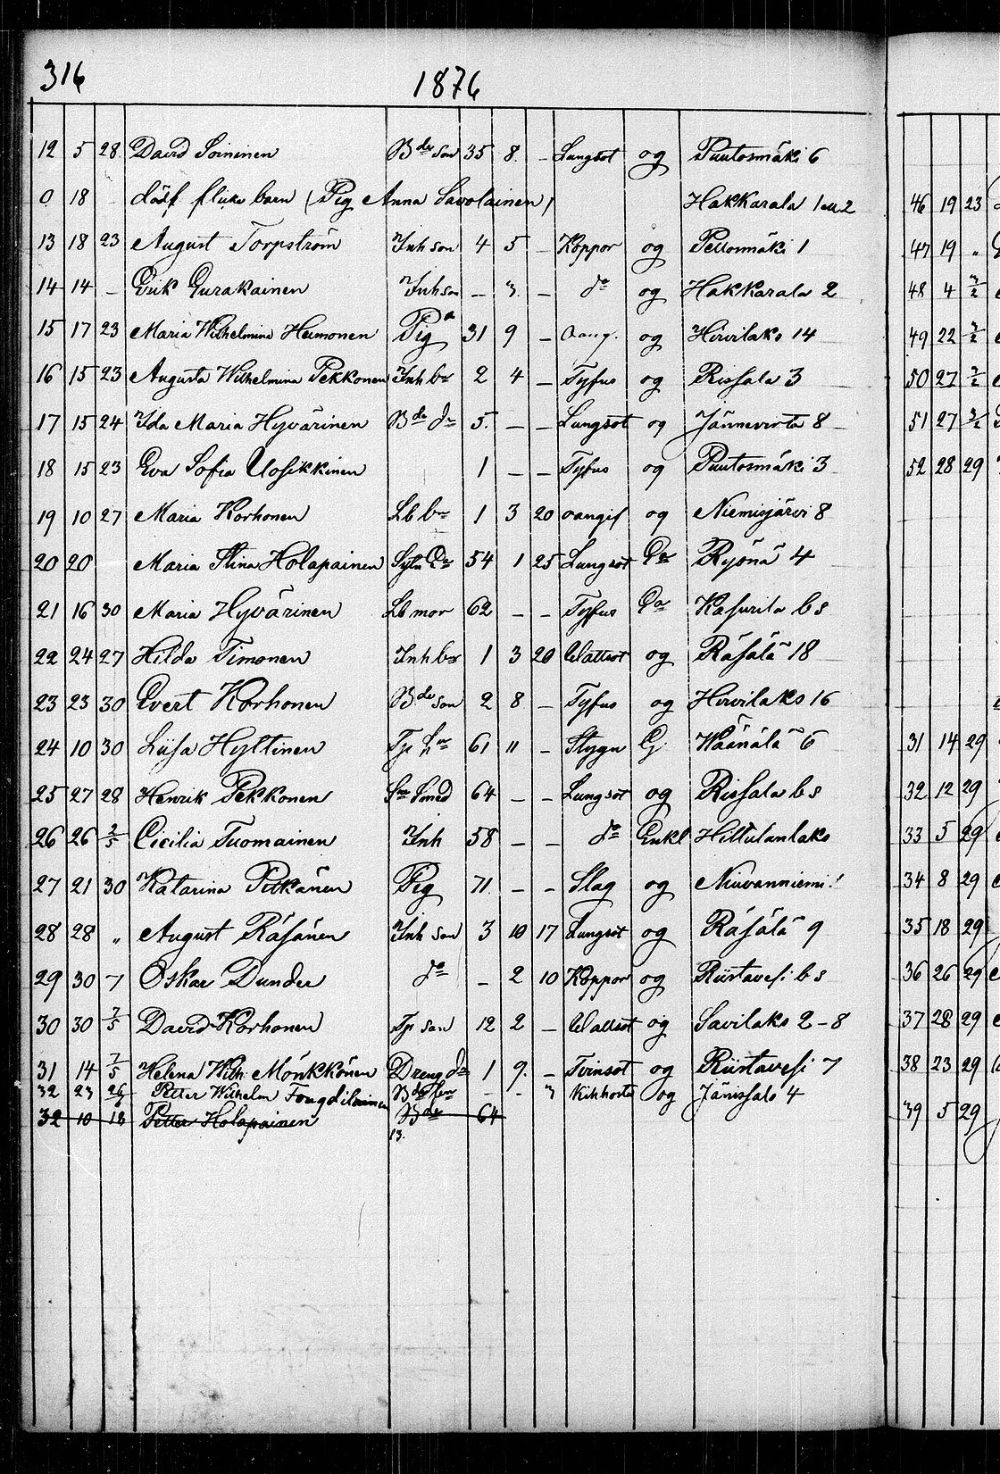 316
1876
12 5 28 David Soininen Bde son 35 8 - Lungsot og Puutosmäki 6
0 18 dödf flicko barn (Pig Anna Savolainen) Hakkarala 1 au 2
13 18 23 August Torpström Inh son 4 5 - Koppor og Pellosmäki 1
14 14 - Erik Eurakainen Inh son - 3 - do og Hakkarala 2
15 17 23 Maria Wilhelmina Heimonen Piga 31 9 - oang. og Hirvilaks 14
16 15 23 Augusta Wilhelmina Pekkonen Inh br 2 4 - Tyfus og Rissala 3
17 15 24 Ida Maria Hyvärinen Bde dr 5 - - Lungsot og Jännevirta 8
18 15 23 Eva Sofia Uosikkinen 1 - - Tyfus og Puutosmäki 3
19 10 27 Maria Korhonen Lb br 1 3 20 oangif og Niemisjärvi 8
20 20 Maria Stina Holapainen Sytn Er 54 1 25 Lungsot Er Ryönä 4
21 16 30 Maria Hyvärinen Lb mor 62 - - Tyfus Er Kasurila b 8
22 24 27 Hilda Timonen Inh br 1 3 20 Wattsot og Räsälä 18
23 23 30 Evert Korhonen Bde son 2 8 - Tyfus og Hirvilaks 16
24 10 30 Liisa Hyttinen Tp hu 61 11 - Stygn G. Wäänälä 6
25 27 28 Henrik Pekkonen Sn Smed 64 - - Lungsot og Rissala b 8
26 26 2/5 Cicilia Tuomainen Inh 58 - - do Enkl Hiltulanlaks
27 21 30 Katarina Pitkänen Pig 71 - - Slag og Niuvanniemi
28 28 " August Räsänen Inh son 3 10 17 Lungsot og Räsälä 9
29 30 7 Oskar Dunder do - 2 10 Koppor og Riistavesi b 8
30 30 7/5 David Korhonen Tp son 12 2 - Wattsot og Savilaks 2-8
31 14 7/5 Helena Wilh: Mönkkönen Dreng dr 1 9 - Tvinsot og Riistavesi 7
32 23 26/6 Petter Wilhelm Fougdilainen Bde - - 3 Kikhosta og Jänissalo 4
32 10 18 Petter Holapainen Bde 64
13.
46 19 23
47 19 "
48 4 3/2
49 22 3/2
50 27 3/2
51 27 3/2
52 28 29
31 14 29
32 12 29
33 5 29
34 8 29
35 18 29
36 26 29
37 28 29
38 23 29
39 5 29